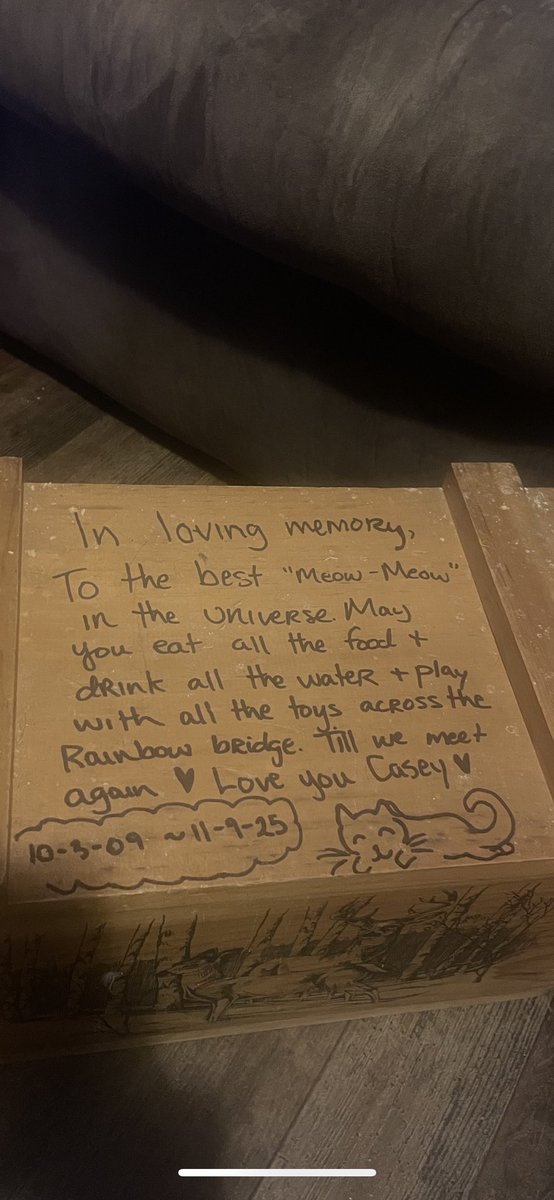 In loving memory,
To the best "Meow-Meow"
in the universe. May
you eat all the food +
drink all the water + play
with all the toys across the
Rainbow bridge. Till we meet
again ♥ Love you Casey ♥
10-3-09 ~ 11-9-25